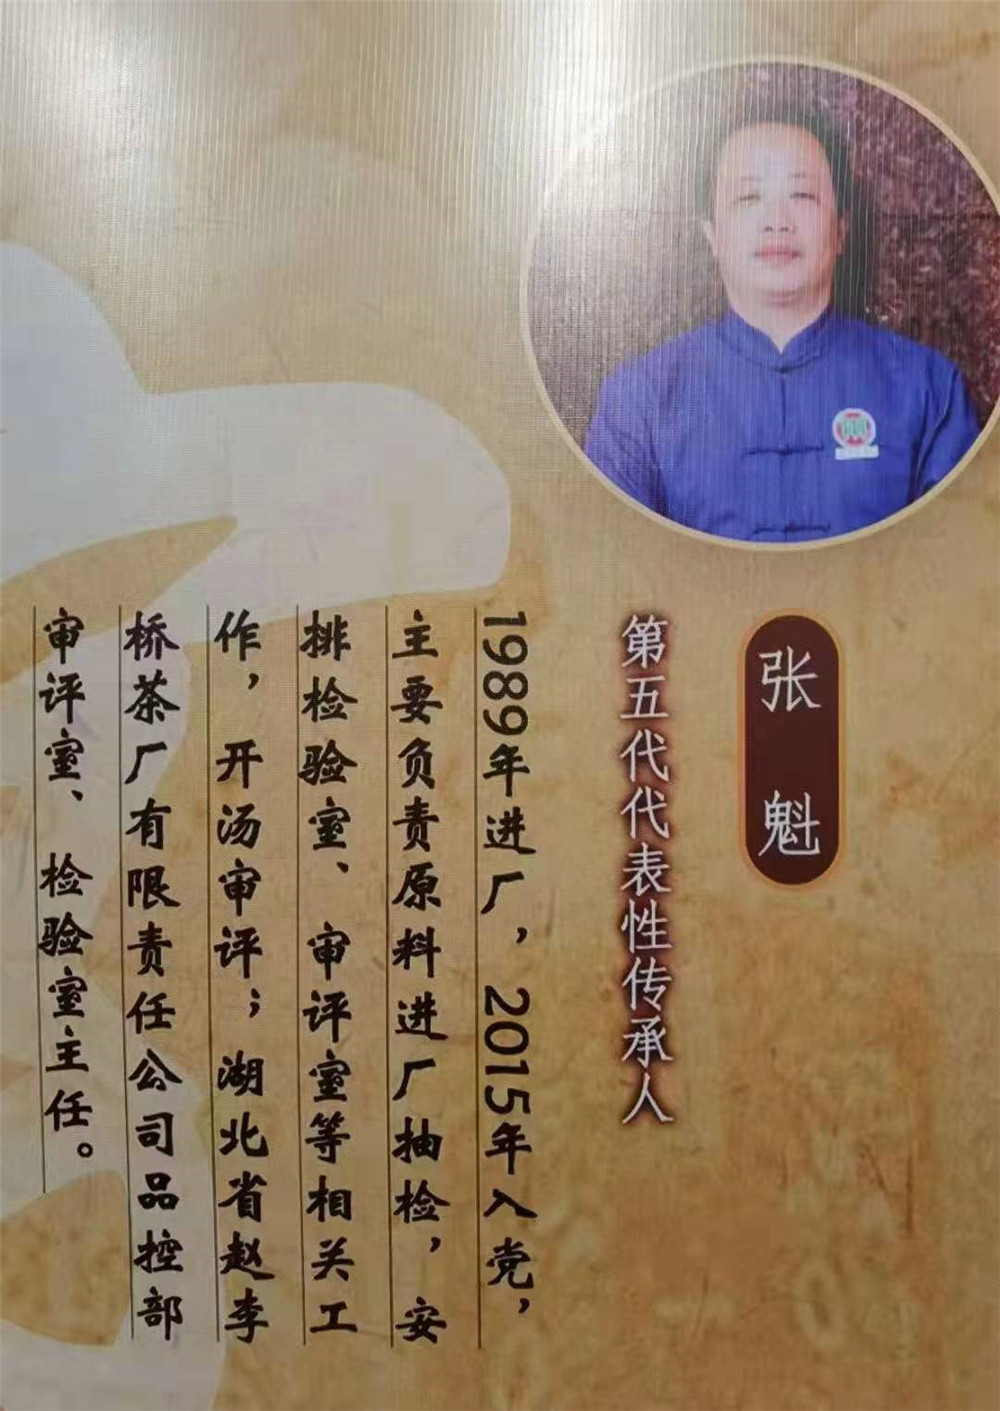 张魁
第五代代表性传承人
1989年进厂，2015年入党，
主要负责原料进厂抽检，安
排检验室、审评室等相关工
作，开汤审评；湖北省赵李
桥茶厂有限责任公司品控部
审评室、检验室主任。